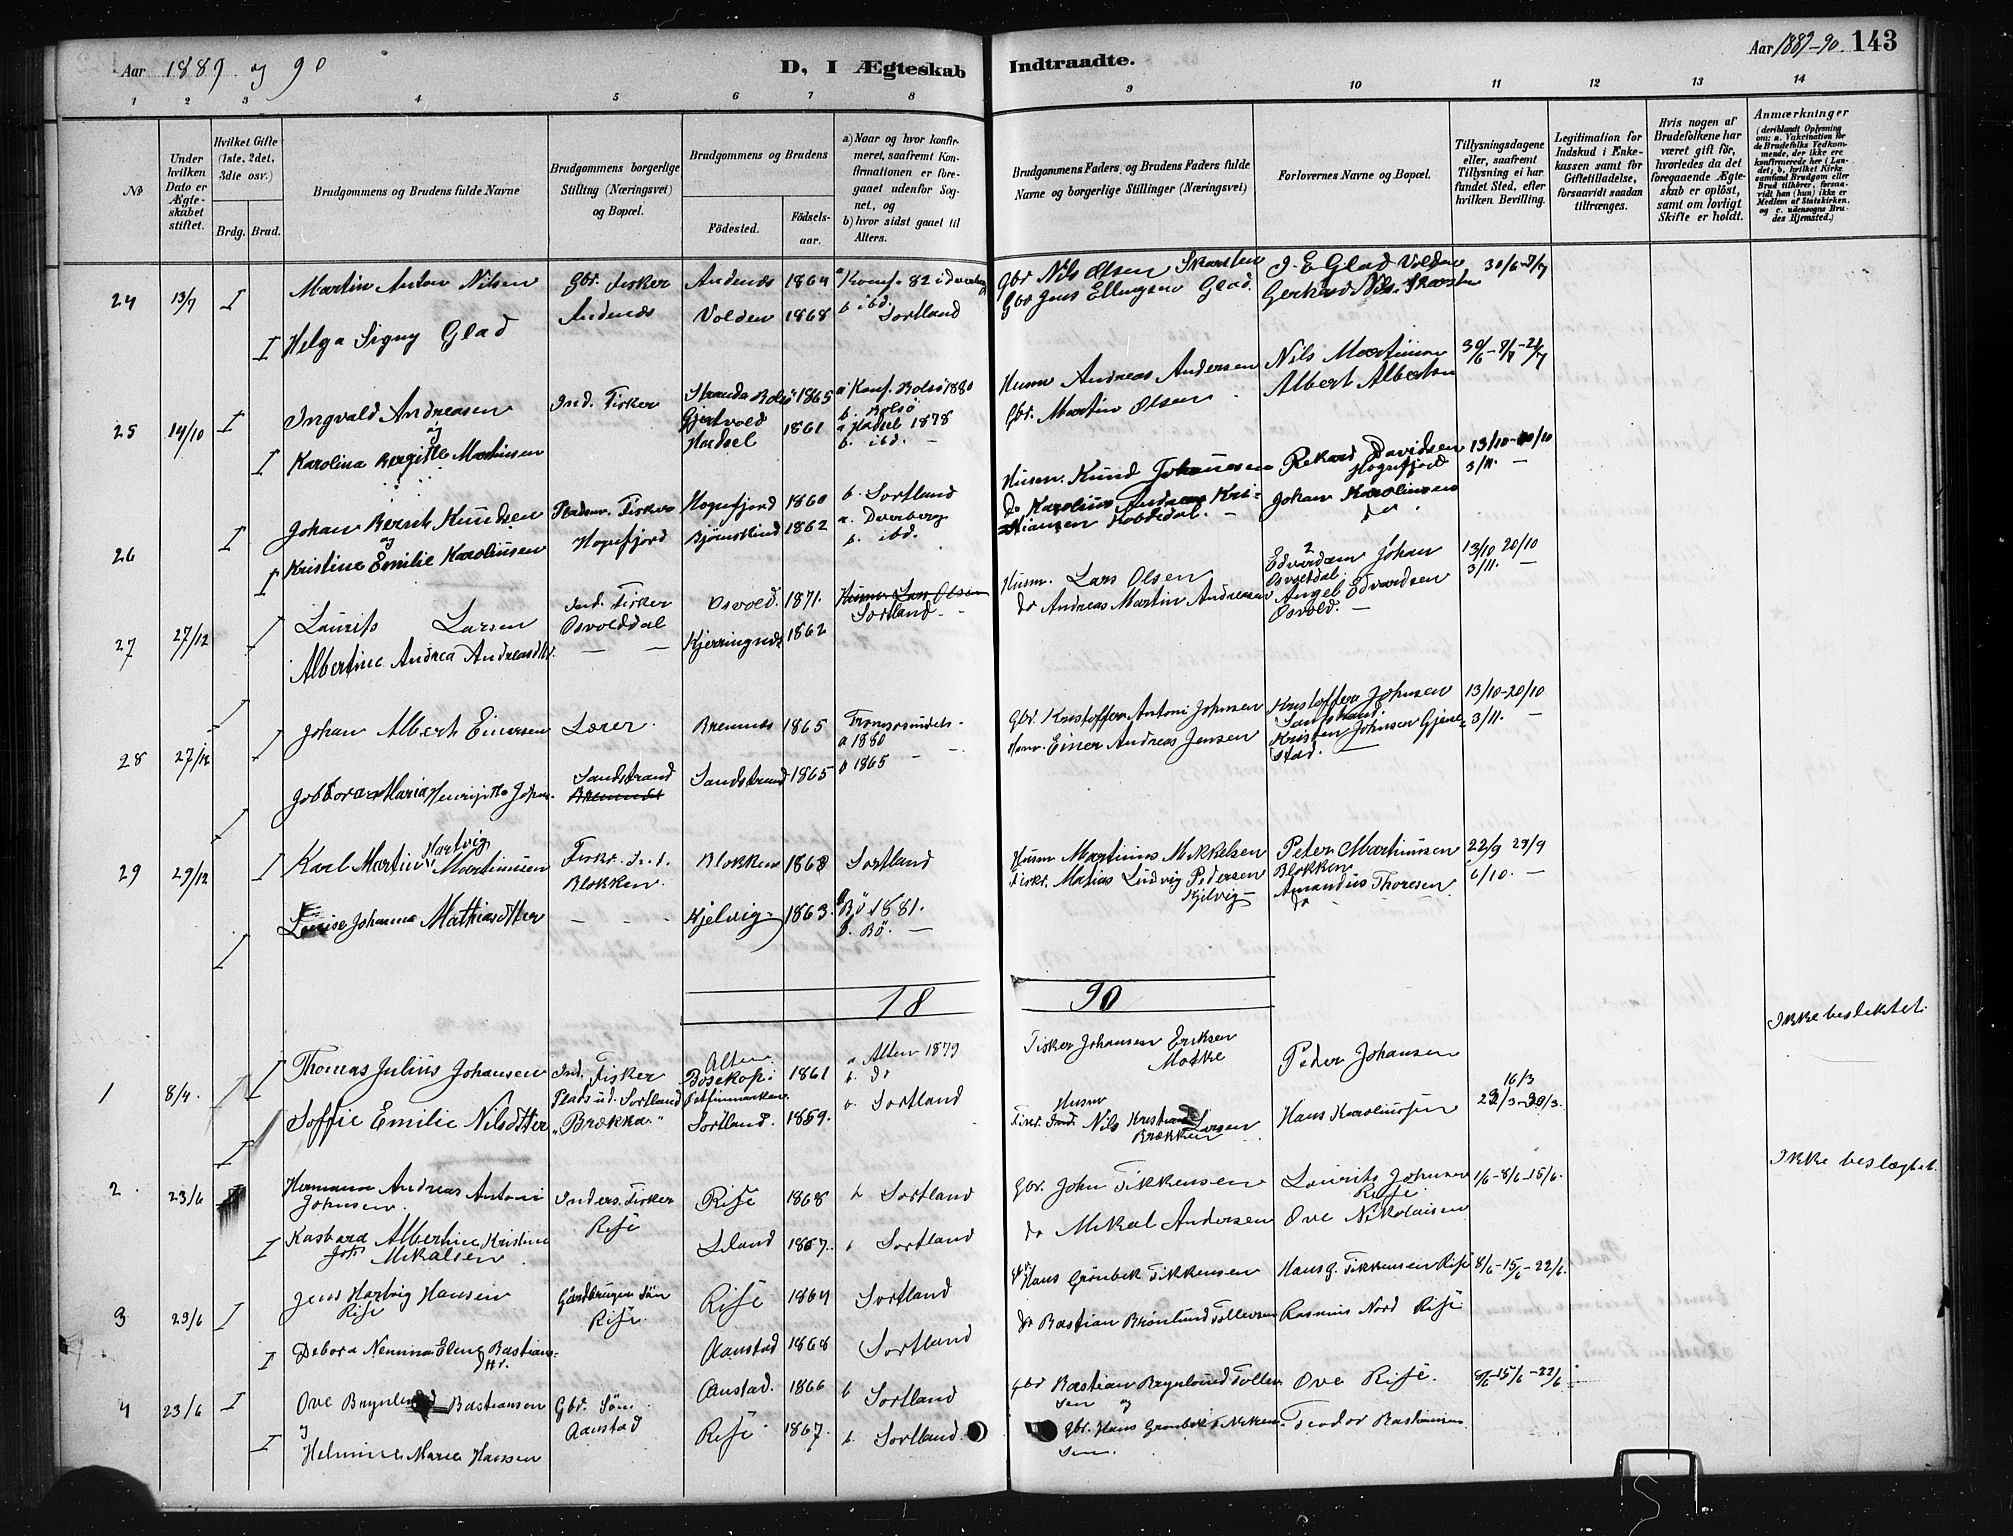 Aar 1889 og 90
D, I Ægteskab Indtraadte.
Aar 1889-90. 143
1 2 3 4 5 6 7 8 9 10 11 12 13 14
No
Under hvilken Dato er Ægteskabet stiftet.
Hvilket Gifte (1ste, 2det, 3die osv.)
Brdg. Brud.
Brudgommens og Brudens fulde Navne
Brudgommens borgerlige Stilling (Næringsvei) og Bopæl.
Brudgommens og Brudens
Födested.
Födselsaar.
a) Naar og hvor konfirmeret, saafremt Konfirmationen er foregaaet udenfor Sognet, og
b) hvor sidst gaaet til Alters.
Brudgommens Faders, og Brudens Faders fulde Navne og borgerlige Stillinger (Næringsvei)
Forlovernes Navne og Bopæl.
Tillysningsdagene eller, saafremt Tillysning ei har fundet Sted, efter hvilken Bevilling.
Legitimation for Indskud i Enkekassen samt for Giftetilladelse, forsaavidt saadan tiltrænges.
Hvis nogen af Brudefolkene har været gift för, hvorledes da det foregaaende Ægteskab er oplöst, samt om lovligt Skifte er holdt.
Anmærkninger
(deriblandt Oplysning om: a. Vakcination for de Brudefolks Vedkommende, der ikke ere konfirmerede her i Landet; b. hvilket Kirkesamfund Brudgom eller Brud tilhörer, forsaavidt han (hun) ikke er Medlem af Statskirken, og c. udensogns Brudes Hjemsted.)
24 13/7 I Martin Anton Nilsen Gbr. Fisker Andenes 1864 a Konf. 82 i Dverberg Gbr Nils Olsen Skarsten J. E Glad Volden 30/6-7/7
I Helga Signy Glad Andenes Volden 1868 b ibd. Sortland Gbr Jens Ellingsen Glad. Gerhard Nils. Skarsten
25 14/10 I Ingvald Andreasen Ind. Fisker Strande Bolsö 1865 a Konf. Bolsö 1880 b. Bolsö Husm Andreas Andersen Nils Martinson 30/6-7/7-21/7
og
I Karolina Bergitte Martinsen Gjertvold Hadsel 1861 a Hadsel 1878 b. ibd. Gbr. Martin Olsen Albert Albertsen
26 I Johan Bernh Knudsen Pladsm. Fisker Hognfjord 1860 b. Sortland Husm. Knud Johannesen Rekard Davidsen Hognfjord 13/10-20/10 3/11.
og
I Kristine Emilie Karoliusen Hognfjord Bjørnskind 1862 a. Dverberg b. ibd. do Karolius Andreas Kristiansen Kobbedal. Johan Karolinsen do
27 27/12 I Laurits Larsen Ind. Fisker Osvolddal Osvold. 1871. Husm Lars Olsen Sortland Husm. Lars Olsen Edvardsen Johan Osvolddal 13/10 20/10 3/11.
Albertine Andrea Andreasdtr. Kjerringnes 1862 do Andreas Martin Andreasen Angel Edvardsen Osvold.
28 27/12 I Johan Albert Einersen Lærer. Bremnes 1865 Tromsøsundet a 1880 Gbr. Kristoffer Antoni Johnsen Kristoffer Johnsen Sandstrand. 13/10-20/10 3/11.
Maria Henrijette Johns. Sandstrand Bremnes Sandstrand 1865 b 1865 Einer Andreas Jensen Kristen Johnsen Gjenestad.
29 29/12 I Karl Martin Hartvig Martinusen Fisker Ind. Blokken. Blokken 1868 Sortland Husm Martinus Mikkelsen Peter Martinusen Blokken 22/9 29/9 6/10.
I Louise Johanna Mathiasdtter Kjelvig 1863. a Bö 1881. b. Bö. Fiskr. Matias Ludvig Pedersen Kjelvig Amandus Thoresen do
18 90
1 8/4. I Thomas Julius Johansen Ind. Fisker Plads ud. Sortland Alten Bosekop i Østfinmarken. 1861 a Alten 1879 b. do Fisker Johansen Eriksen Peder Johansen Ikke beslektet.
I Soffie Emilie Nilsdtter "Brækka" Sortland. 1859. b. Sortland Husm Fiskr. Ind. Nils Kristian Larsen Brækken Hans Karoliussen 16/3 23/3-30/3.
2 23/6 I Hermann Andreas Antoni Johnsen. Inders. Fisker Rise Rise 1868 b Sortland Gbr. John Fikkensen Laurits Johnsen Rise 1/6-8/6-15/6. Ikke beslægtet.
I Kasbara Albertine Kristine Mikalsen Leland 1867. b Sortland do Mikal Andersen Ove Nikolaisen
3 23/6 I Jens Hartvig Hansen Rise Gårdbruger Søn Rise. Rise 1864 Sortland Gbr Hans Grönbek Fikkensen Hans G. Fikkensen Rise 8/6-15/6-22/6.
I Debora Nemina Eling Bastiansdtr. Aanstad 1868 Sortland do Bastian Brönlund Tollevsen Rasmus Nord Rise
4 23/6 I Ove Brynlund Bastiansen Gbr. Søn Aanstad Anstad. 1866 b Sortland Gbr Bastian Brynlund Tollevsen Ove Rise. 8/6-15/6-22/6
og
I Helmine Marie Hansen Rise 1867. b. Sortland. Gbr. Hans Grönbek Fikkensen. Teodor Bastiansen